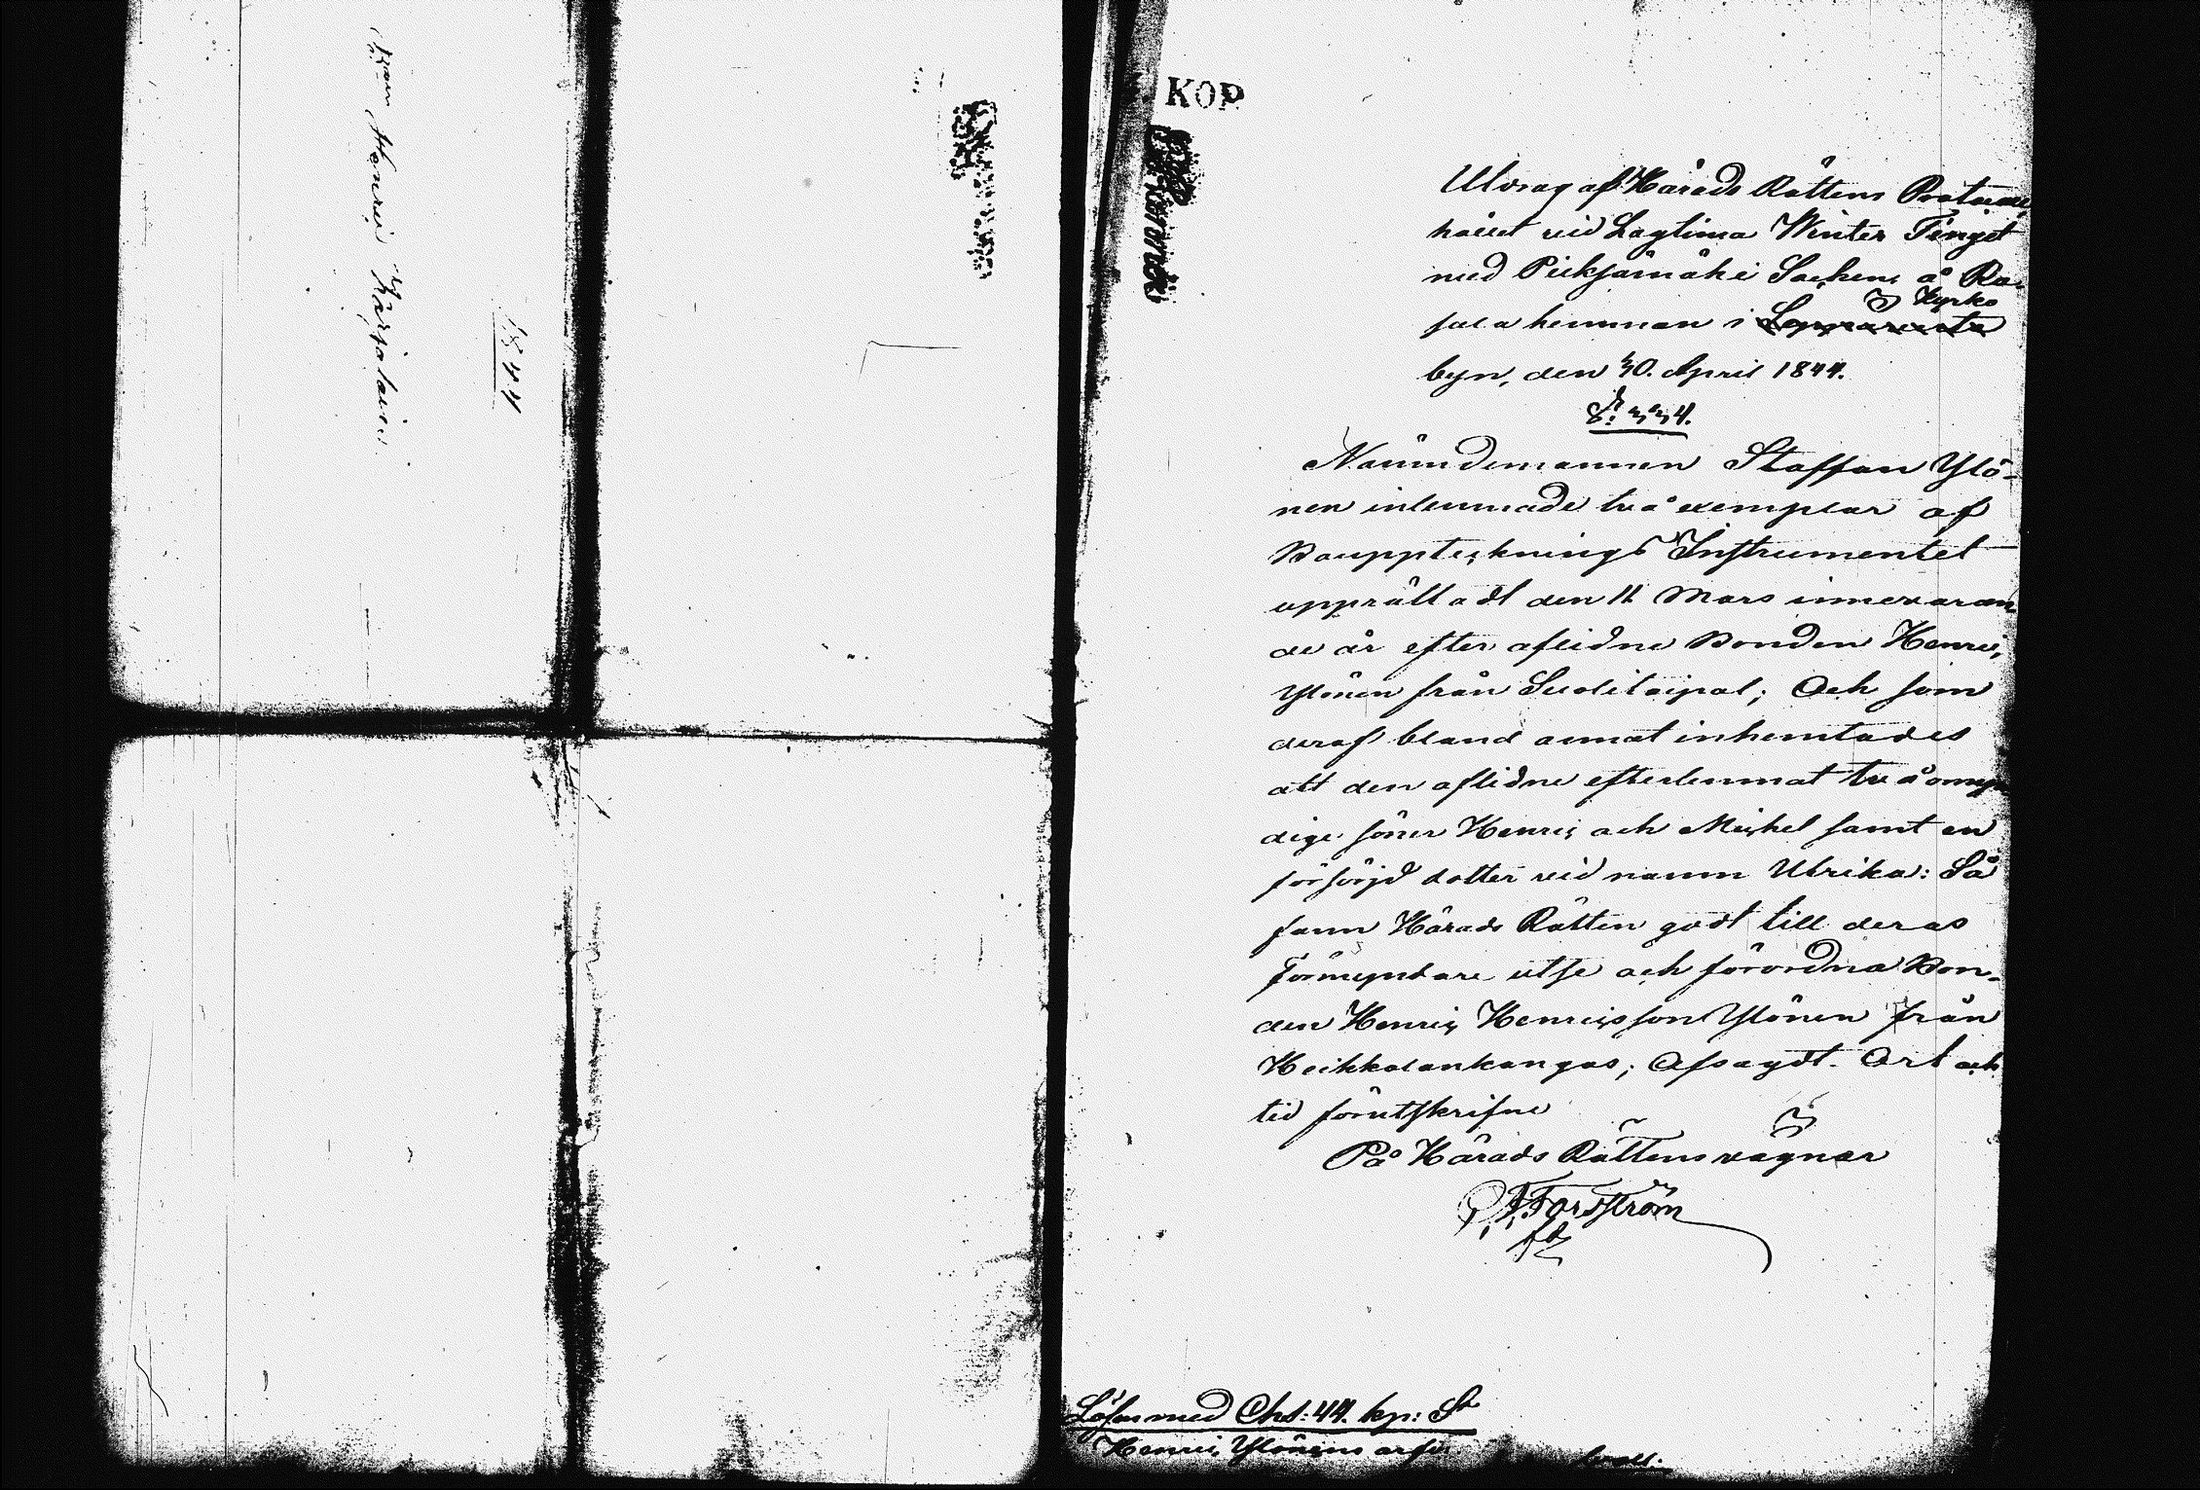 Henric Karjalain
1844
KOP
Utdrag af Härads Rättens Protocoll
hållet vid Lagtima Winter Tinget
med Pieksämäki Sochen å Ra-
sala hemman i Kyrko
byn, den 30. April 1844.
§. 224.
Nämndemannen Staffan Ylö-
nen inlemnade två exemplar af
Bouppteckningš Instrumentet
upprättadt den 11 Mars innevaran-
de år efter aflidne Bonden Henric
Ylönen från Suolitaipal; Och som
deraf bland annat inhemtades
att den aflidne efterlemnat två omyn
dige söner Henric och Michel samt en
försörjd dotter vid namn Ulrika: Så
fann Härads Rätten godt till deras
Förmyndare utse och förordna Bon-
den Henric Henricsson Ylönen från
Heikkalankangas; Afsagdt. Ort och
tid förutskrifne
På Härads Rättens vägnar
Forsström
Lösen med Chs: 44. kp: St
Henric Ylönens arfv.